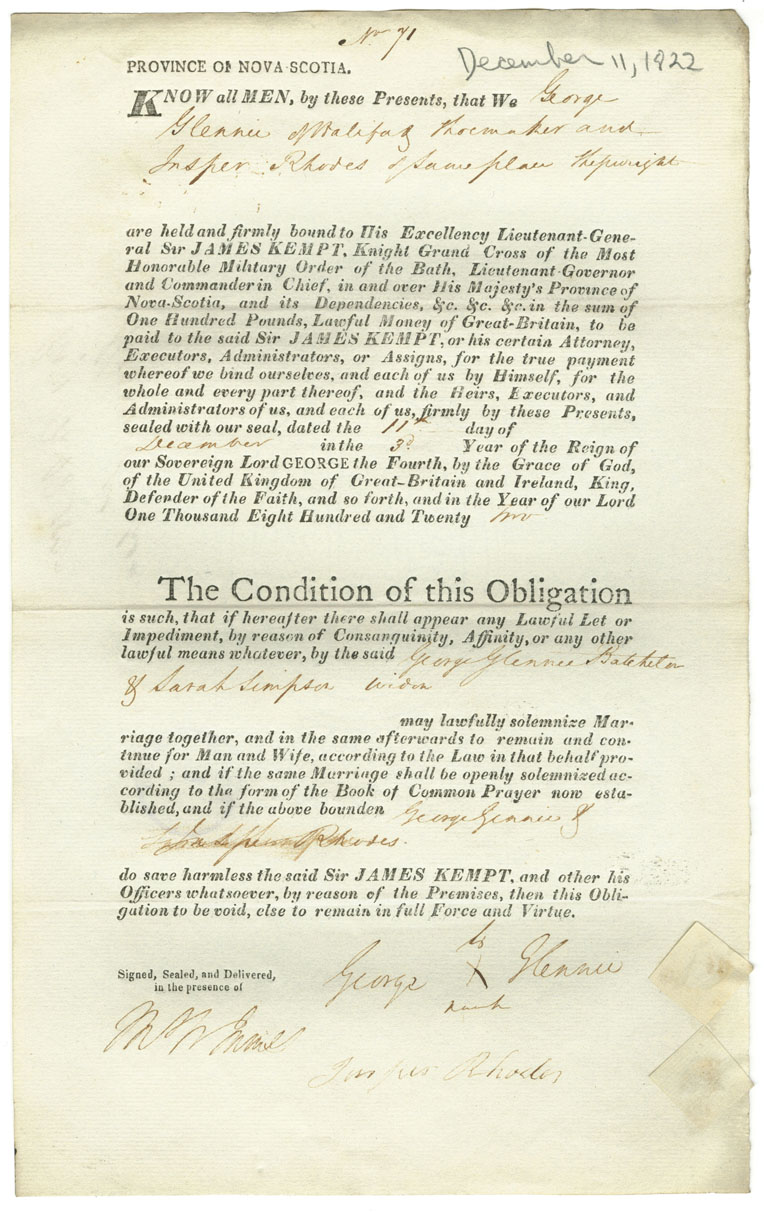 No 71
December 11, 1822
PROVINCE OF NOVA SCOTIA.
KNOW all MEN, by these Presents, that We George
Glennie of Halifax Shoemaker and
Jasper Rhodes of same place Shipwright
are held and firmly bound to His Excellency Lieutenant-Gene-
ral Sir JAMES KEMPT, Knight Grand Cross of the Most
Honorable Military Order of the Bath, Lieutenant-Governor
and Commander in Chief, in and over His Majesty's Province of
Nova-Scotia, and its Dependencies, &c. &c. &c. in the sum of
One Hundred Pounds, Lawful Money of Great-Britain, to be
paid to the said Sir JAMES KEMPT, or his certain Attorney,
Executors, Administrators, or Assigns, for the true payment
whereof we bind ourselves, and each of us by Himself, for the
whole and every part thereof, and the Heirs, Executors, and
Administrators of us, and each of us, firmly by these Presents,
sealed with our seal, dated the 11th day of
December in the 3d Year of the Reign of
our Sovereign Lord GEORGE the Fourth, by the Grace of God,
of the United Kingdom of Great-Britain and Ireland, King,
Defender of the Faith, and so forth, and in the Year of our Lord
One Thousand Eight Hundred and Twenty two
The Condition of this Obligation
is such, that if hereafter there shall appear any Lawful Let or
Impediment, by reason of Consanguinity, Affinity, or any other
lawful means whatever, by the said George Glennie Batchelor
& Sarah Simpson Widow
may lawfully solemnize Mar-
riage together, and in the same afterwards to remain and con-
tinue for Man and Wife, according to the Law in that behalf pro-
vided ; and if the same Marriage shall be openly solemnized ac-
cording to the form of the Book of Common Prayer now esta-
blished, and if the above bounden George Glennie &
Rhodes.
do save harmless the said Sir JAMES KEMPT, and other his
Officers whatsoever, by reason of the Premises, then this Obli-
gation to be void, else to remain in full Force and Virtue.
his
Signed, Sealed, and Delivered,
in the presence of
George X Glennie
mark
Jasper Rhodes